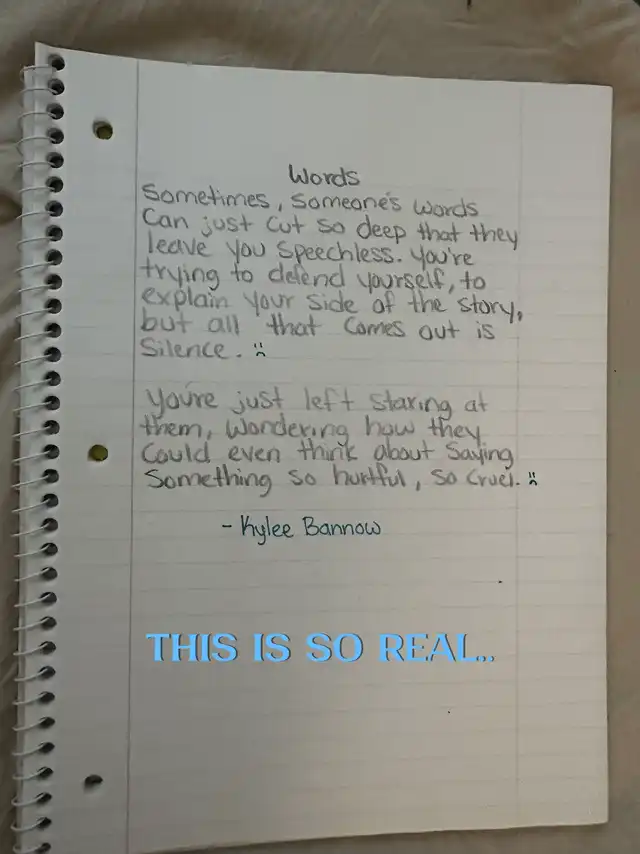 Words
Sometimes, someone's words
can just cut so deep that they
leave you speechless. You're
trying to defend yourself, to
explain your side of the story,
but all that comes out is
silence. :(
You're just left staring at
them, wondering how they
could even think about saying
something so hurtful, so cruel. :(
- Kylee Bannow
THIS IS SO REAL...